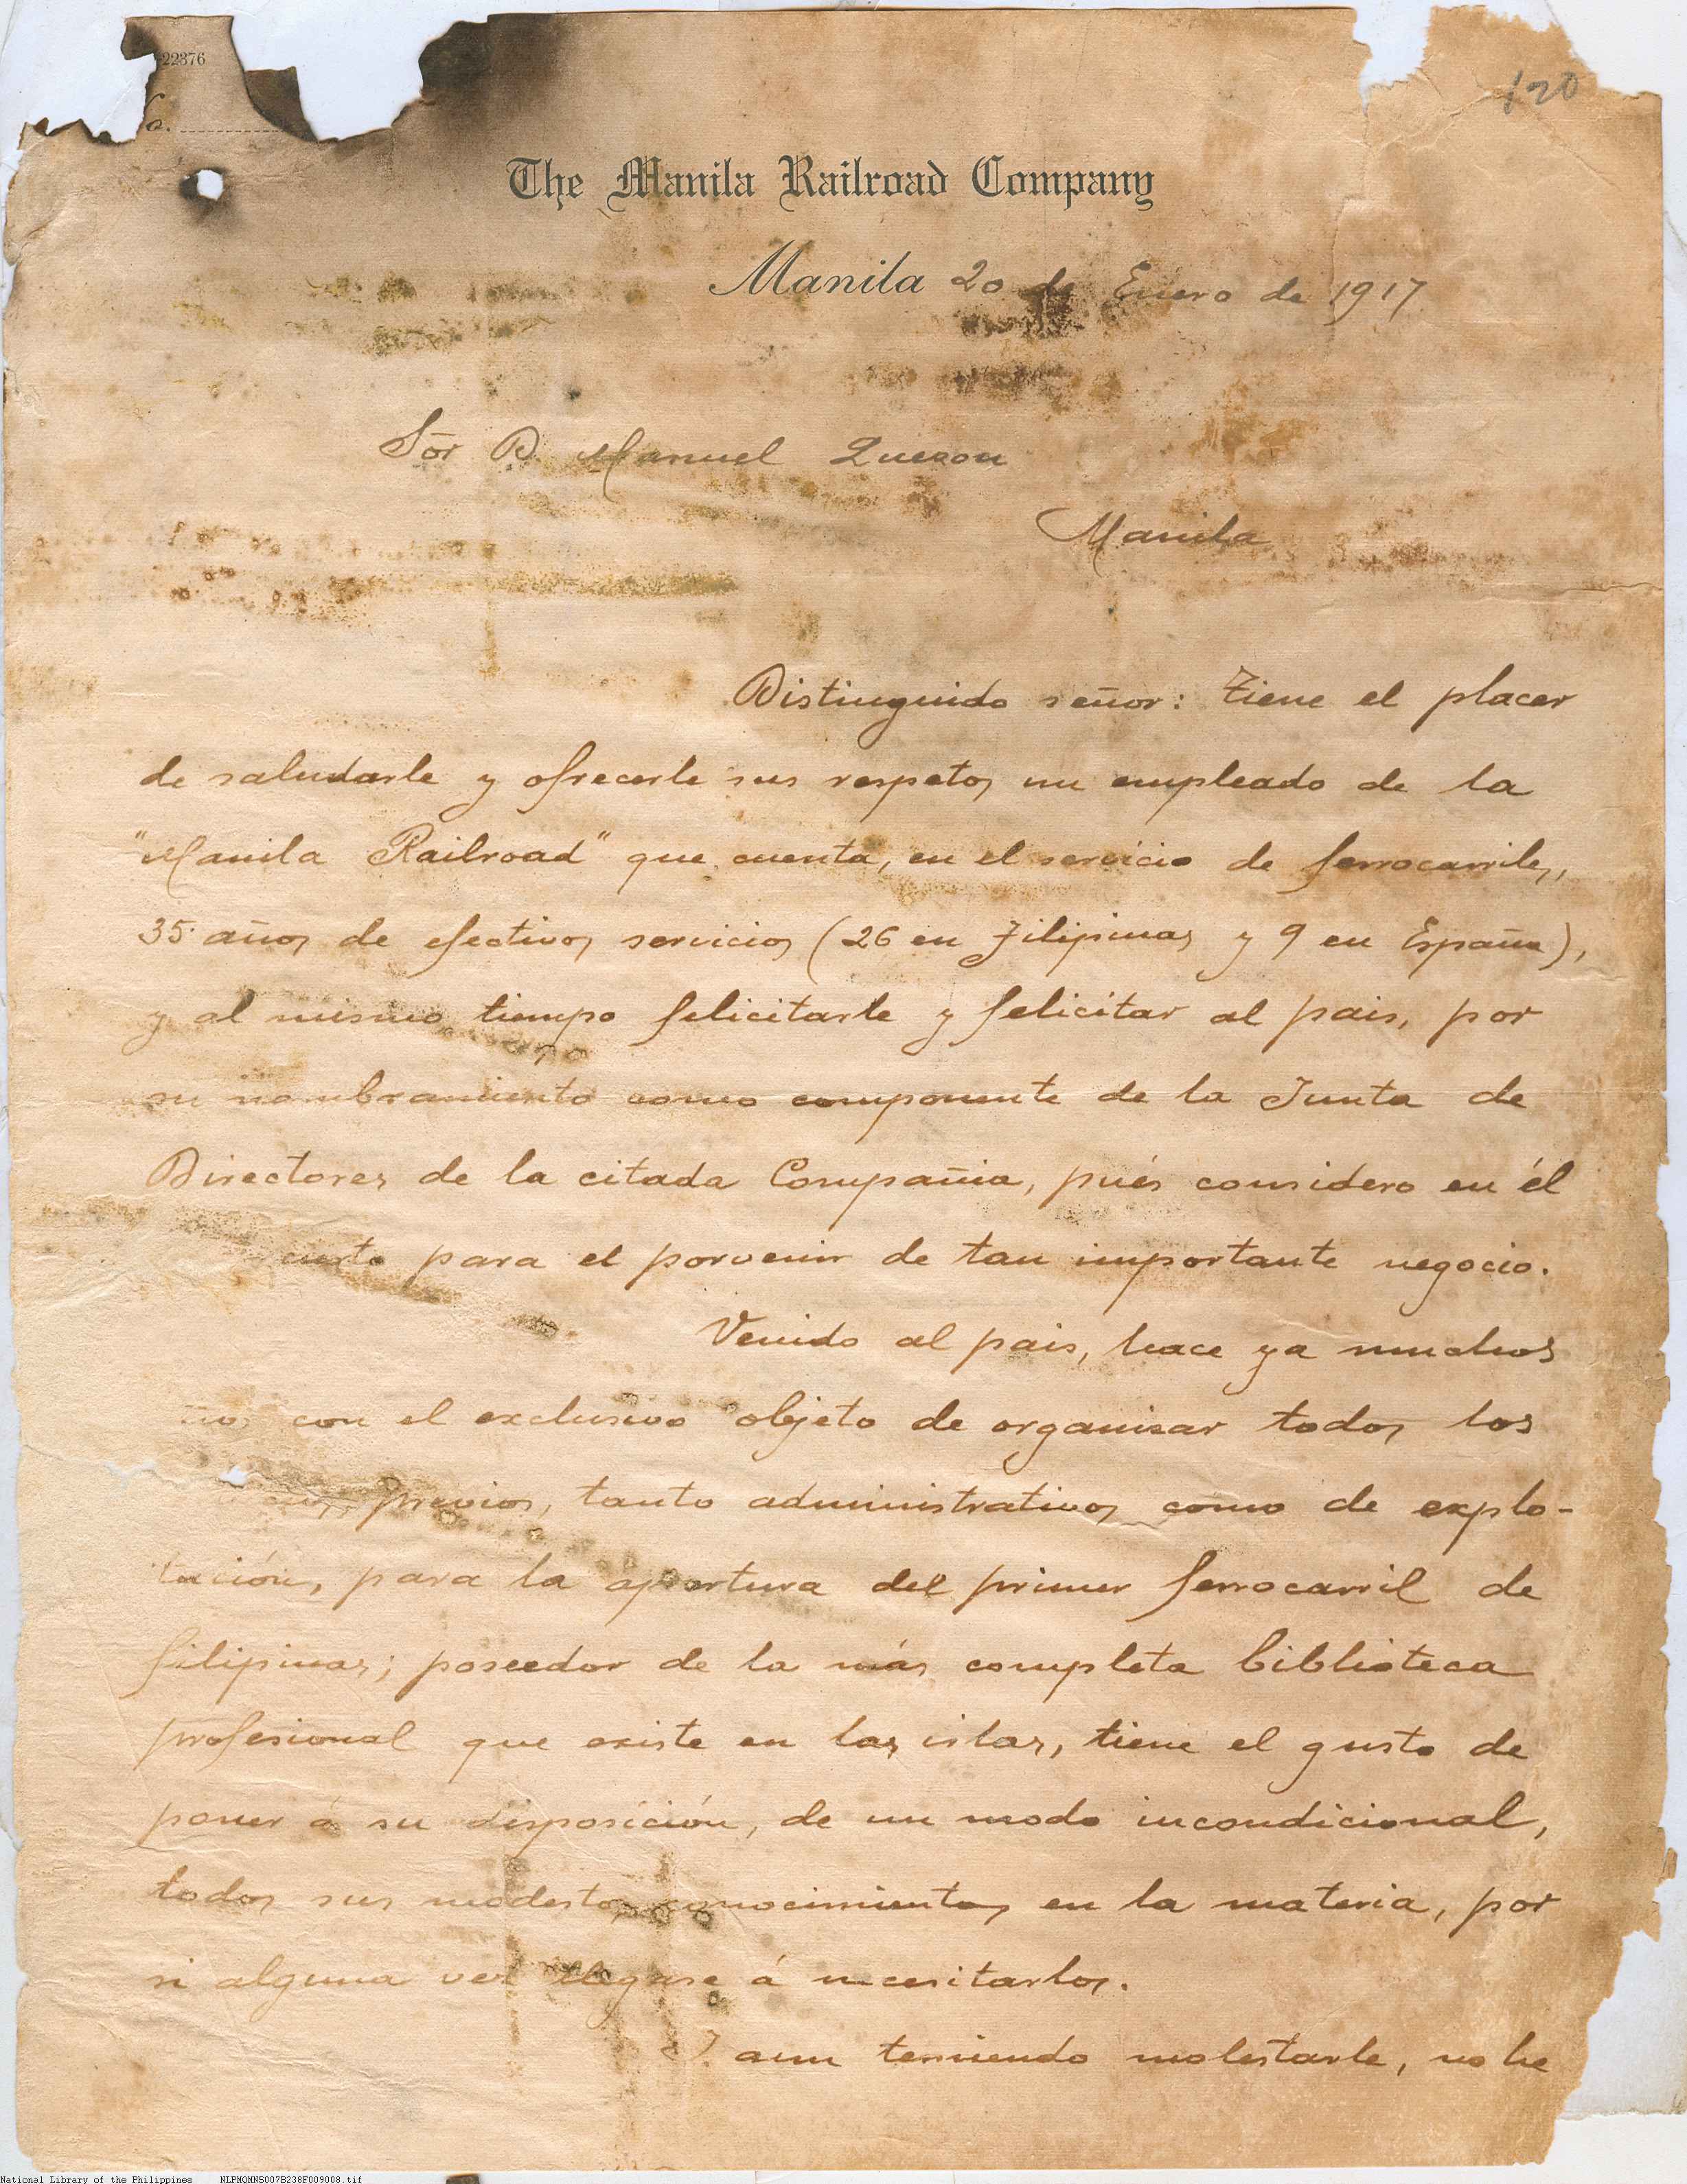 22376
o.
120
The Manila Railroad Company
Manila 20 de Enero de 1917
Sor D. Manuel Quezon
Manila
Distinguido señor: Tiene el placer
de saludarle y ofrecerle sus respetos un empleado de la
"Manila Railroad" que cuenta, en el servicio de ferrocarriles,
35 años de efectivos servicios (26 en Filipinas y 9 en España),
y al mismo tiempo felicitarle y felicitar al pais, por
su nombramiento como componente de la Junta de
Directores de la citada Compañia, pués considero en él
para el porvenir de tan importante negocio.
Venido al pais, hace ya muchos
con el exclusivo objeto de organizar todos los
previos, tanto administrativos como de explo-
tación, para la apertura del primer ferrocarril de
filipinas; poseedor de la más completa biblioteca
profesional que existe en las islas, tiene el gusto de
poner á su disposición, de un modo incondicional,
todos sus modestos conocimientos en la materia, por
si alguna vez llegase á necesitarlos.
aun temiendo molestarle, no he
National Library of the Philippines NLPMQMNS007B238F009008.tif